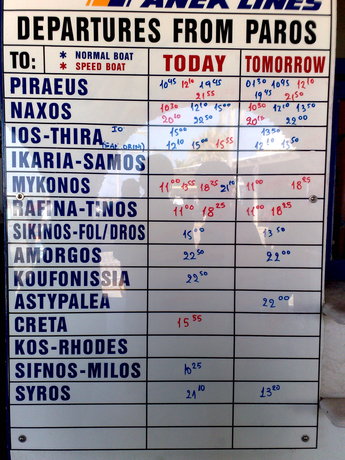 ANEK LINES
DEPARTURES FROM PAROS
TO: * NORMAL BOAT * SPEED BOAT TODAY TOMORROW
PIRAEUS 10 45 12 10 19 45 21 55 01 30 10 45 12 10 19 45 21 50
NAXOS 10 30 12 10 15 00 20 10 22 50 10 30 12 10 13 50 20 10 22 00
IOS-THIRA IO 15 00 13 50
12 10 15 00 15 55 12 10 13 50
IKARIA-SAMOS
MYKONOS 11 00 13 55 18 25 21 10 11 00 18 25
RAFINA-TINOS 11 00 18 25 11 00 18 25
SIKINOS-FOL/DROS 15 00 13 50
AMORGOS 22 50 22 00
KOUFONISSIA 22 50
ASTYPALEA 22 00
CRETA 15 55
KOS-RHODES
SIFNOS-MILOS 10 25
SYROS 21 10 13 20